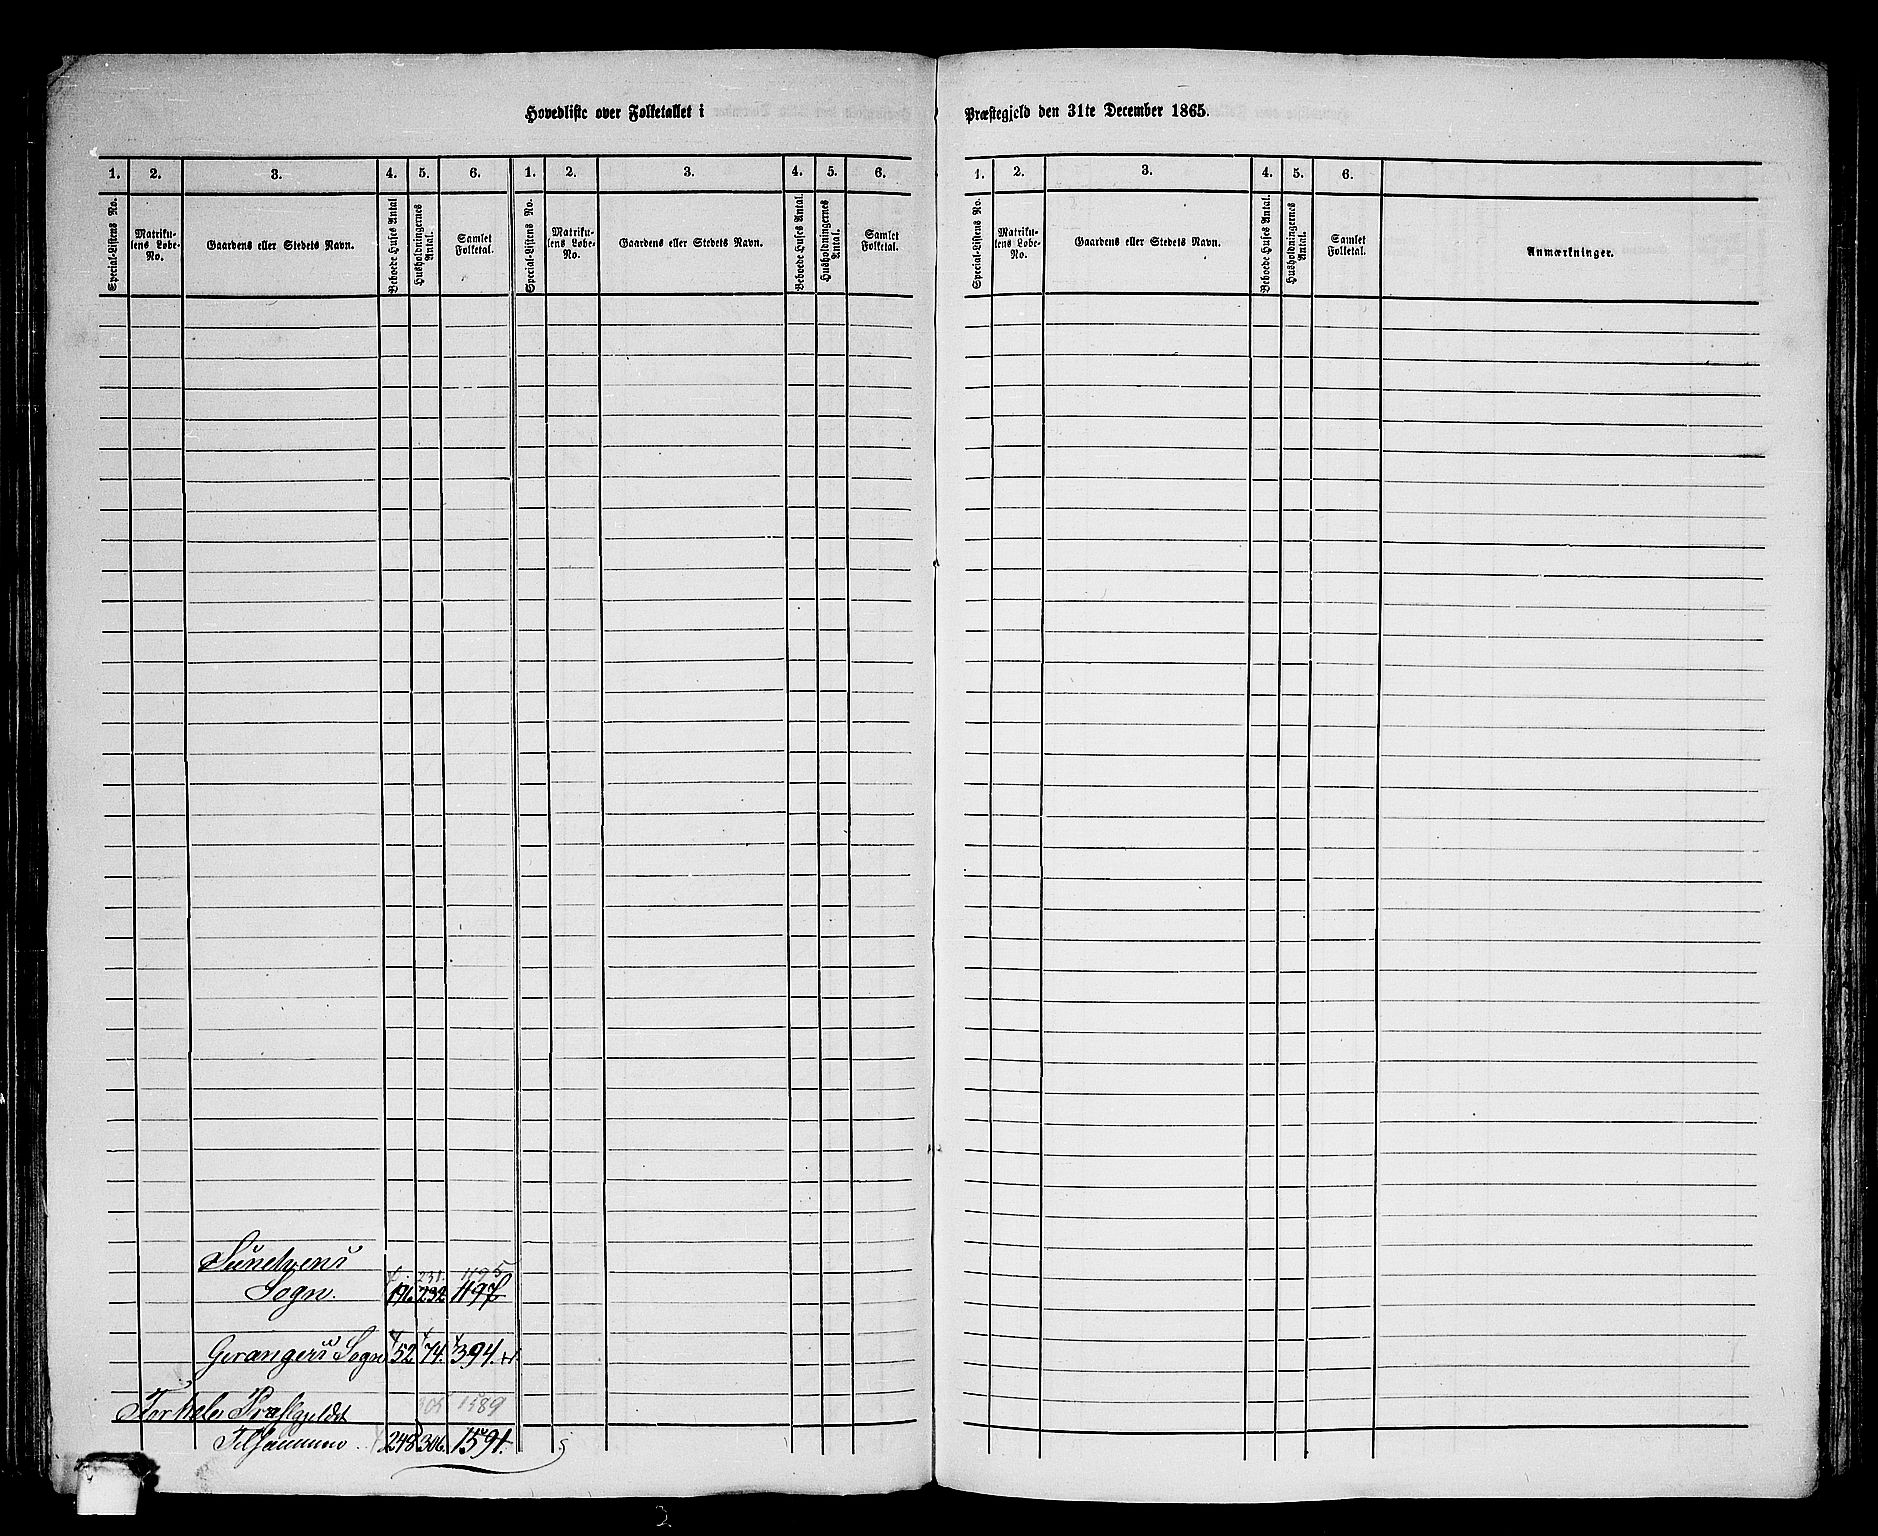 Hovedliste over Folketallet i
Præstegjeld den 31te December 1865.
1. 2. 3. 4. 5. 6. 1. 2. 3. 4. 5. 6.
Special-Listens No.
Matriku-
lens Løbe-
No.
Gaardens eller Stedets Navn.
Beboede Huses Antal
Husholdningernes
Antal.
Samlet
Folketal.
Special-Listens No.
Matriku-
lens Løbe-
No.
Gaardens eller Stedets Navn.
Beboede Huses Antal.
Husholdningernes
Antal.
Samlet
Folketal.
1. 2. 3. 4. 5. 6.
Special-Listens No.
Matriku-
lens Løbe-
No.
Gaardens eller Stedets Navn.
Beboede Huses Antal.
Husholdningernes
Antal.
Samlet
Folketal.
Anmærkninger.
Sunelvens
231. 1195
Sogn. 196 232 1197
Gerangers Sogn 52 74. 394.
305 1589
For hele Præstgjeldet
Tilsammen 248 306 1591.